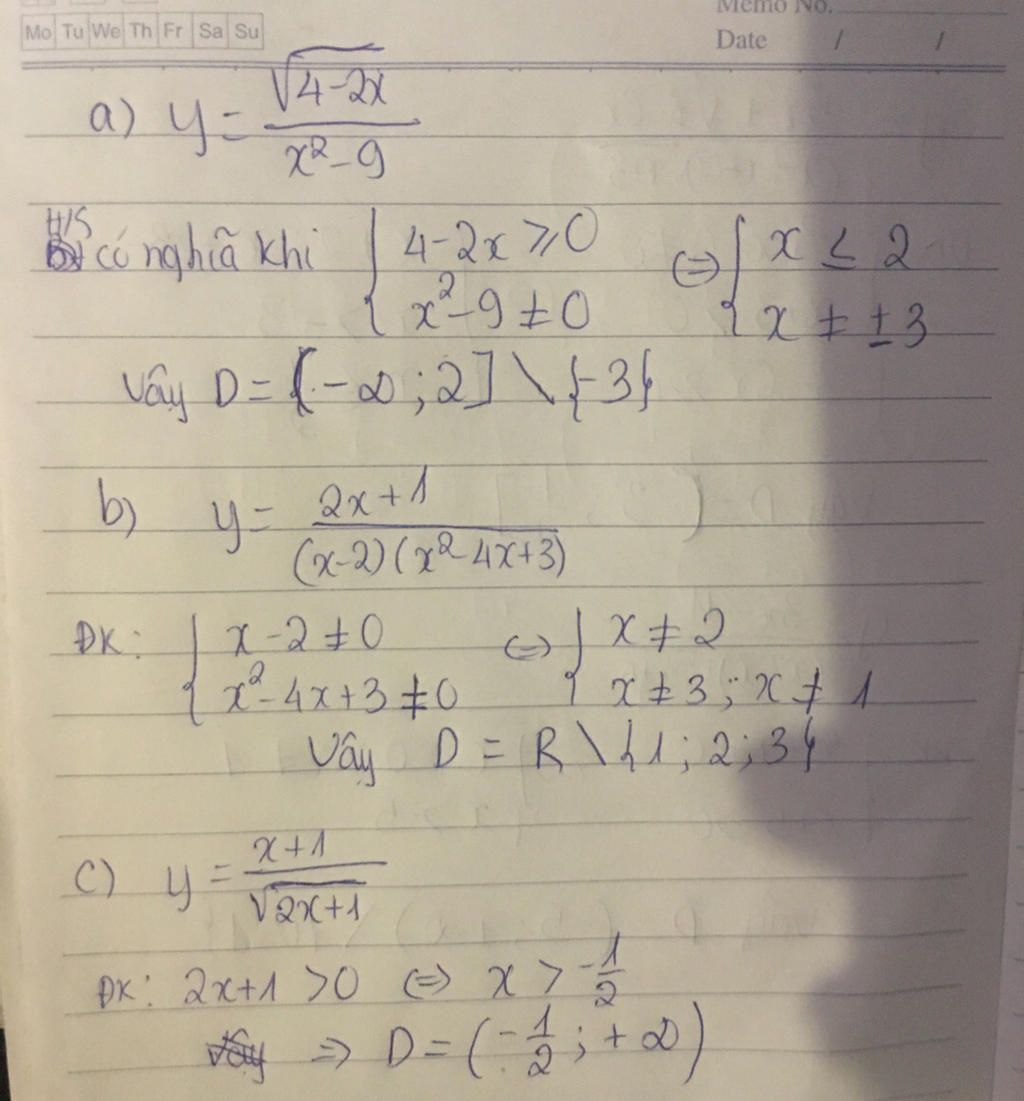 Memo No.
Mo Tu We Th Fr Sa Su
Date / /
a) y = √(4-2x) / (x²-9)
H/S có nghĩa khi { 4-2x ≥ 0 ⇔ { x ≤ 2
x²-9 ≠ 0 x ≠ ±3
Vây D = (-∞ ; 2] \ {-3}
b) y = (2x+1) / ((x-2)(x²-4x+3))
ĐK: { x-2 ≠ 0 ⇔ { x ≠ 2
x²-4x+3 ≠ 0 x ≠ 3 ; x ≠ 1
Vây D = R \ {1 ; 2 ; 3}
c) y = (x+1) / √(2x+1)
ĐK: 2x+1 > 0 ⇔ x > -1/2
Vây ⇒ D = (-1/2 ; +∞)